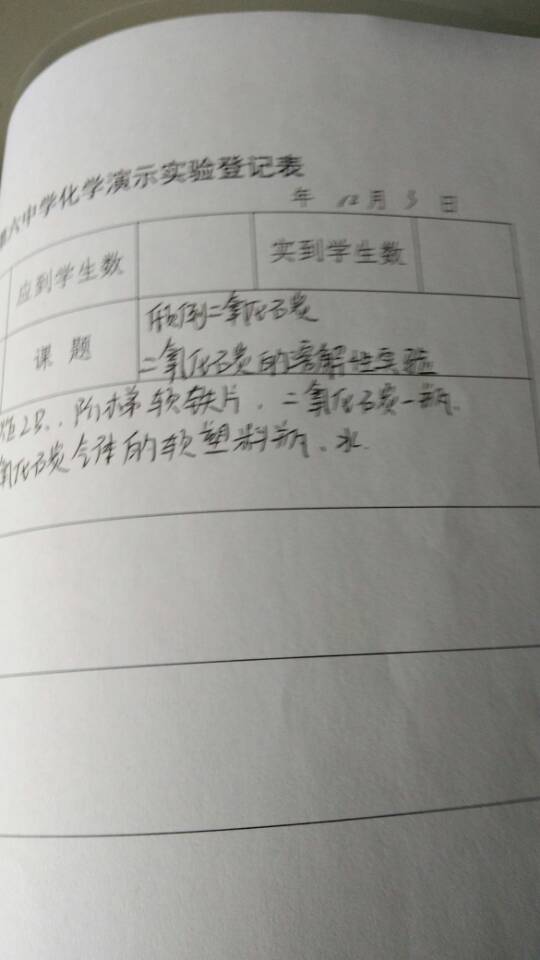 六中学化学演示实验登记表
年 12月 3 日
应到学生数 实到学生数
课 题 倾倒二氧化碳
二氧化碳的溶解性实验
2只、阶梯软铁片、二氧化碳一瓶、
氧化碳气体的软塑料瓶、水